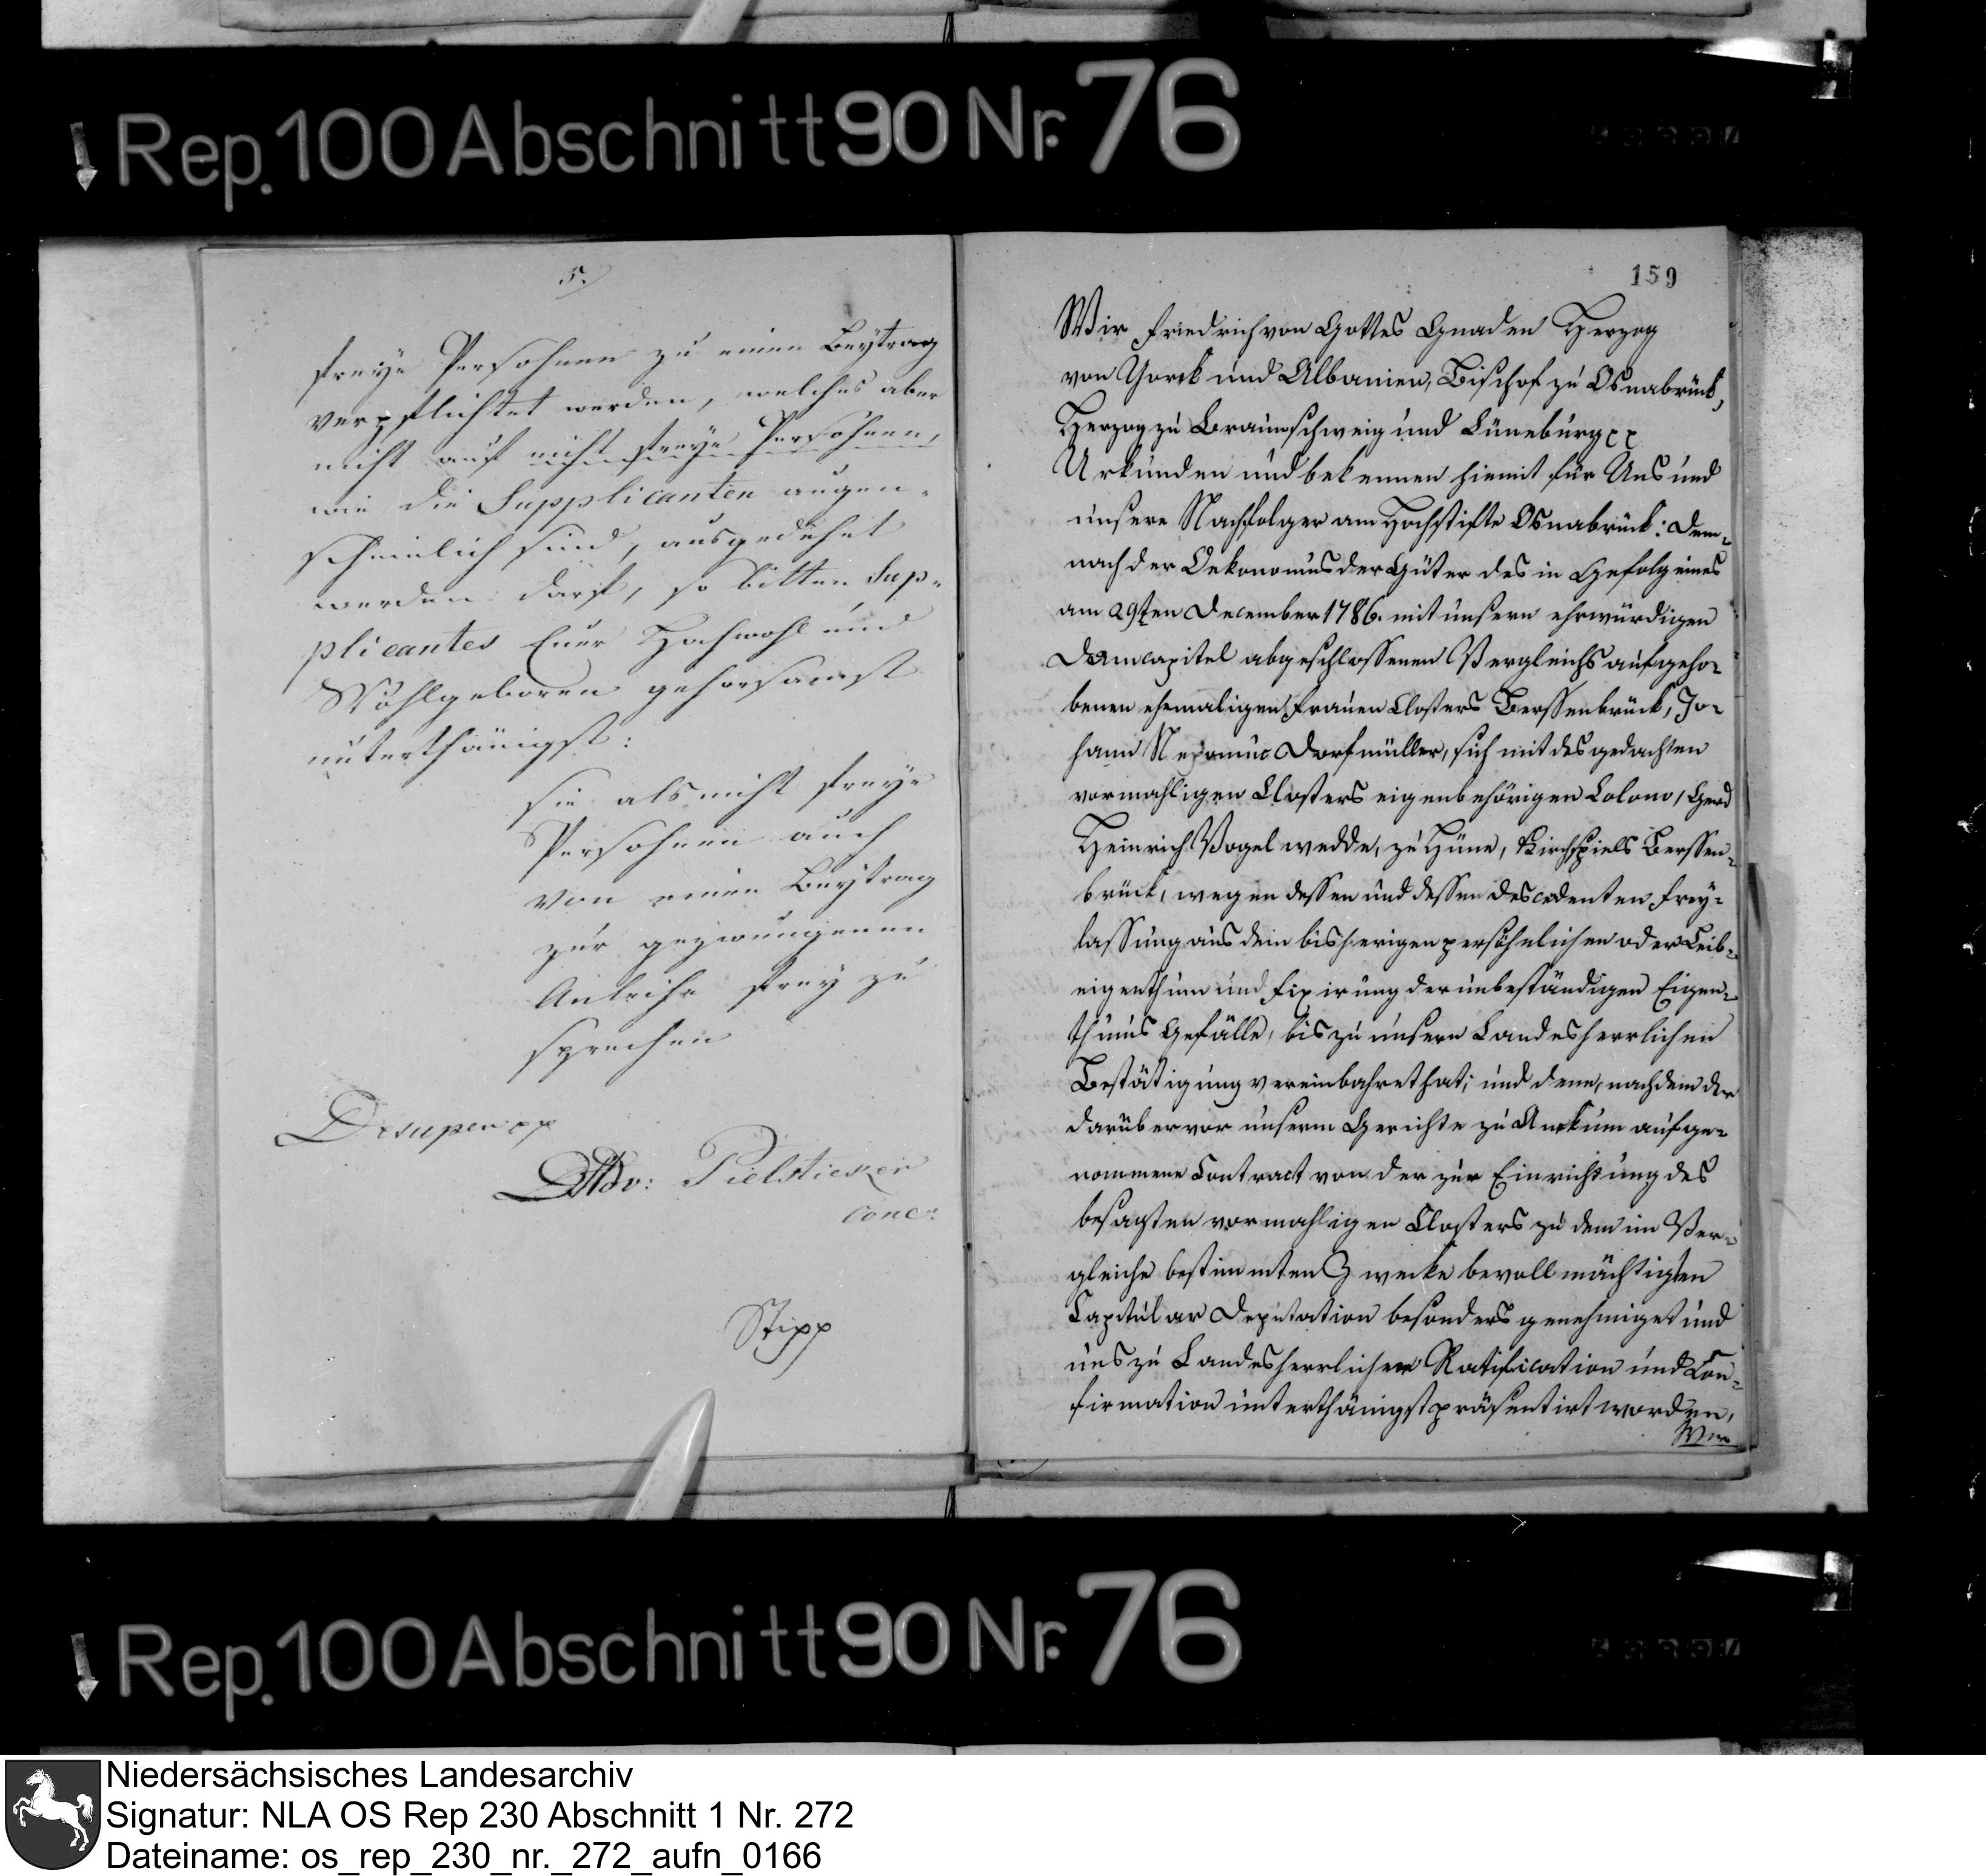 Rep. 100 Abschnitt 90 Nr. 76
5.)
freye Persohnen zu einen Beytrag
verpflichtet werden, welches aber
nicht auf nicht freye Persohnen,
wie die Supplicanten augen-
scheinlich sind, ausgedehnt
werden darf, so bitten Sup-
plicantes Euer Hochwohl und
Wohlgeboren gehorsamst
unterthänigst:
sie als nicht freye
Persohnen auch
von einen Beytrag
zur gezwungenen
Anleihe frey zu
sprechen
Desuper pp
Adv: Pielsticker
conc:
Stipp
159
Wir Friedrich von Gottes Gnaden Herzog
von Yorck und Albanien, Bischof zu Osnabrück,
Herzog zu Braunschweig und Lüneburg pp
Urkunden und bekennen hiemit für Uns und
unsere Nachfolger am Hochstifte Osnabrück: Dem-
nach der Oekonomus der Güter des in Gefolg eines
am 29ten December 1786. mit unsern ehrwürdigen
Domcapitel abgeschlossenen Vergleichs aufgeho-
benen ehemaligen Frauen Closters Berssenbrück, Jo-
hann Nepomuc Dorfmüller, sich mit des gedachten
vormahligen Closters eigenbehörigen Colono, Gerd
Heinrich Vogelwedde, zu Hüne, Kirchspiels Berssen-
brück, wegen dessen und dessen Descedenten Frey-
lassung aus dem bisherigen persöhnlichen oder Leib-
eigenthum und Fixirung der unbeständigen Eigen-
thums Gefälle, bis zu unsern Landesherrlichen
Bestätigung vereinbahret hat; und denn, nachdem der
darüber vor unserm Gerichte zu Ankum aufge-
nommene Contract von der zur Einrichtung des
besagten vormahligen Closters zu dem im Ver-
gleiche bestimmten Zwecke bevollmächtigten
Capitular Deputation besonders genehmiget und
uns zu Landesherrlichen Ratification und Con-
firmation unterthänigst präsentirt worden,
Wir
Rep. 100 Abschnitt 90 Nr. 76
Niedersächsisches Landesarchiv
Signatur: NLA OS Rep 230 Abschnitt 1 Nr. 272
Dateiname: os_rep_230_nr._272_aufn_0166